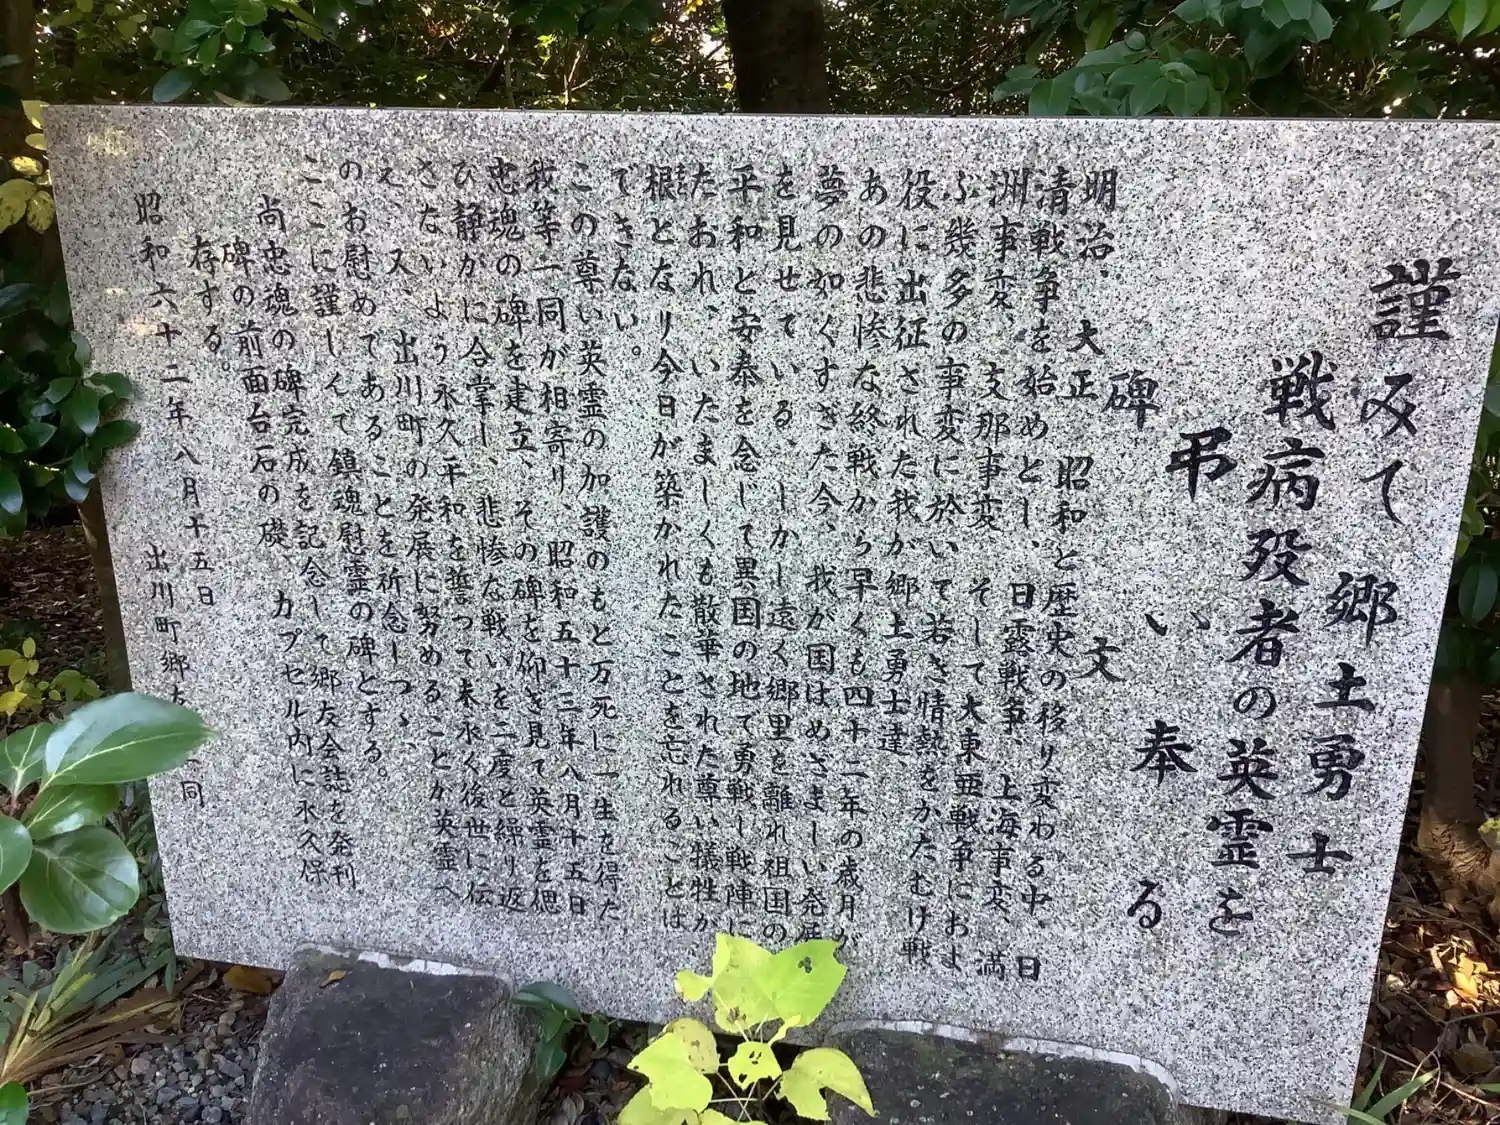 謹みて郷土勇士
戦病歿者の英霊を
弔い奉る
碑文
明治、大正、昭和と歴史の移り変わる中、日
清戦争を始めとし、日露戦争、上海事変、満
洲事変、支那事変、そして大東亜戦争におよ
ぶ幾多の事変に於いて若き情熱をかたむけ戦
役に出征された我が郷土勇士達、
あの悲惨な終戦から早くも四十二年の歳月が
夢の如くすぎた今、我が国はめざましい発展
を見せている、しかし遠く郷里を離れ祖国の
平和と安泰を念じて異国の地で勇戦し戦陣に
たおれ、いたましくも散華された尊い犠牲が
根となり今日が築かれたことを忘れることは
できない。
この尊い英霊の加護のもと万死に一生を得た
我等一同が相寄り、昭和五十三年八月十五日
忠魂の碑を建立、その碑を仰ぎ見て英霊を偲
び静かに合掌し、悲惨な戦いを二度と繰り返
さないよう永久平和を誓って末永く後世に伝
え、又、出川町の発展に努めることが英霊へ
のお慰めであることを祈念しつゝ、
ここに謹しんで鎮魂慰霊の碑とする。
尚忠魂の碑完成を記念して郷友会誌を発刊
碑の前面台石の礎、カプセル内に永久保
存する。
昭和六十二年八月十五日
出川町郷友 一同